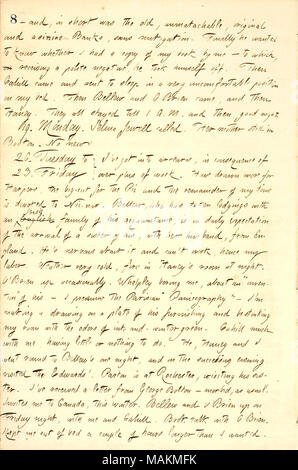 8 - and, in short was the old, unmatchable, original
and asinine Banks, sans mitigation. Finally he wanted
to know whether I had a copy of my book by me - to which,
on receiving a polite negative, he took himself off. Then
Cahill came and went to sleep in a very uncomfortable position
on my bed. Then Bellew and O'Brien came, and then
Haney. They all stayed till 1 A.M., and then, good night.
19. Monday. Selina Jewell called. Her mother still in
Boston. No news.
20. Tuesday to I've got into arrears, in consequence of
23. Friday over plus of work. Have drawn more for
Harpers, the big-cut for the Pic and the remainder of my time
is devoted to Nic-nax. Bellew, who has taken lodgings with an
English family of his acquaintance, is in daily expectation
of the arrival of a sister of his, with her husband, from En-
gland. He's nervous about it and can't work, hence my
labor. Weather very cold, fire in Haney's room at night.
O'Brien up occasionally. Whelpley boring me, about an inven-
tion of his - I presume the Parisian Panicography" - I'm
making a drawing on a plate of his furnishing and
my room with the odors of ink and winter-green. Cahill much
with me having little or nothing to do. He, Haney and I
went round to Bellew's one night, and on the succeeding evening
visited the Edwards'. Parton is at Rochester, visiting his sis-
ter. I've received a letter from George Bolton - morbid, as usual.
Invites me to Canada, this winter. Bellew and O'Brien up on
Friday night, with me and Cahill. Book talk with O'Brien,
kept me out of bed a couple of hours longer than I wanted.
alamy
MAKMFK